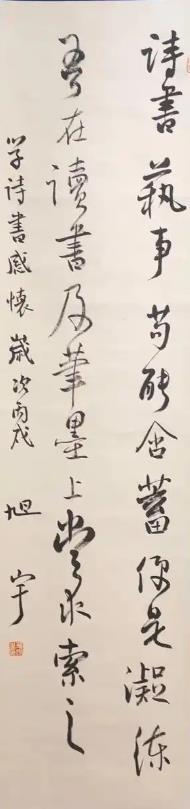 詩書蓺事苟能含蓄便是凝練
吾在讀書及筆墨上求索之
学詩書感懷歲次丙戌
旭宇